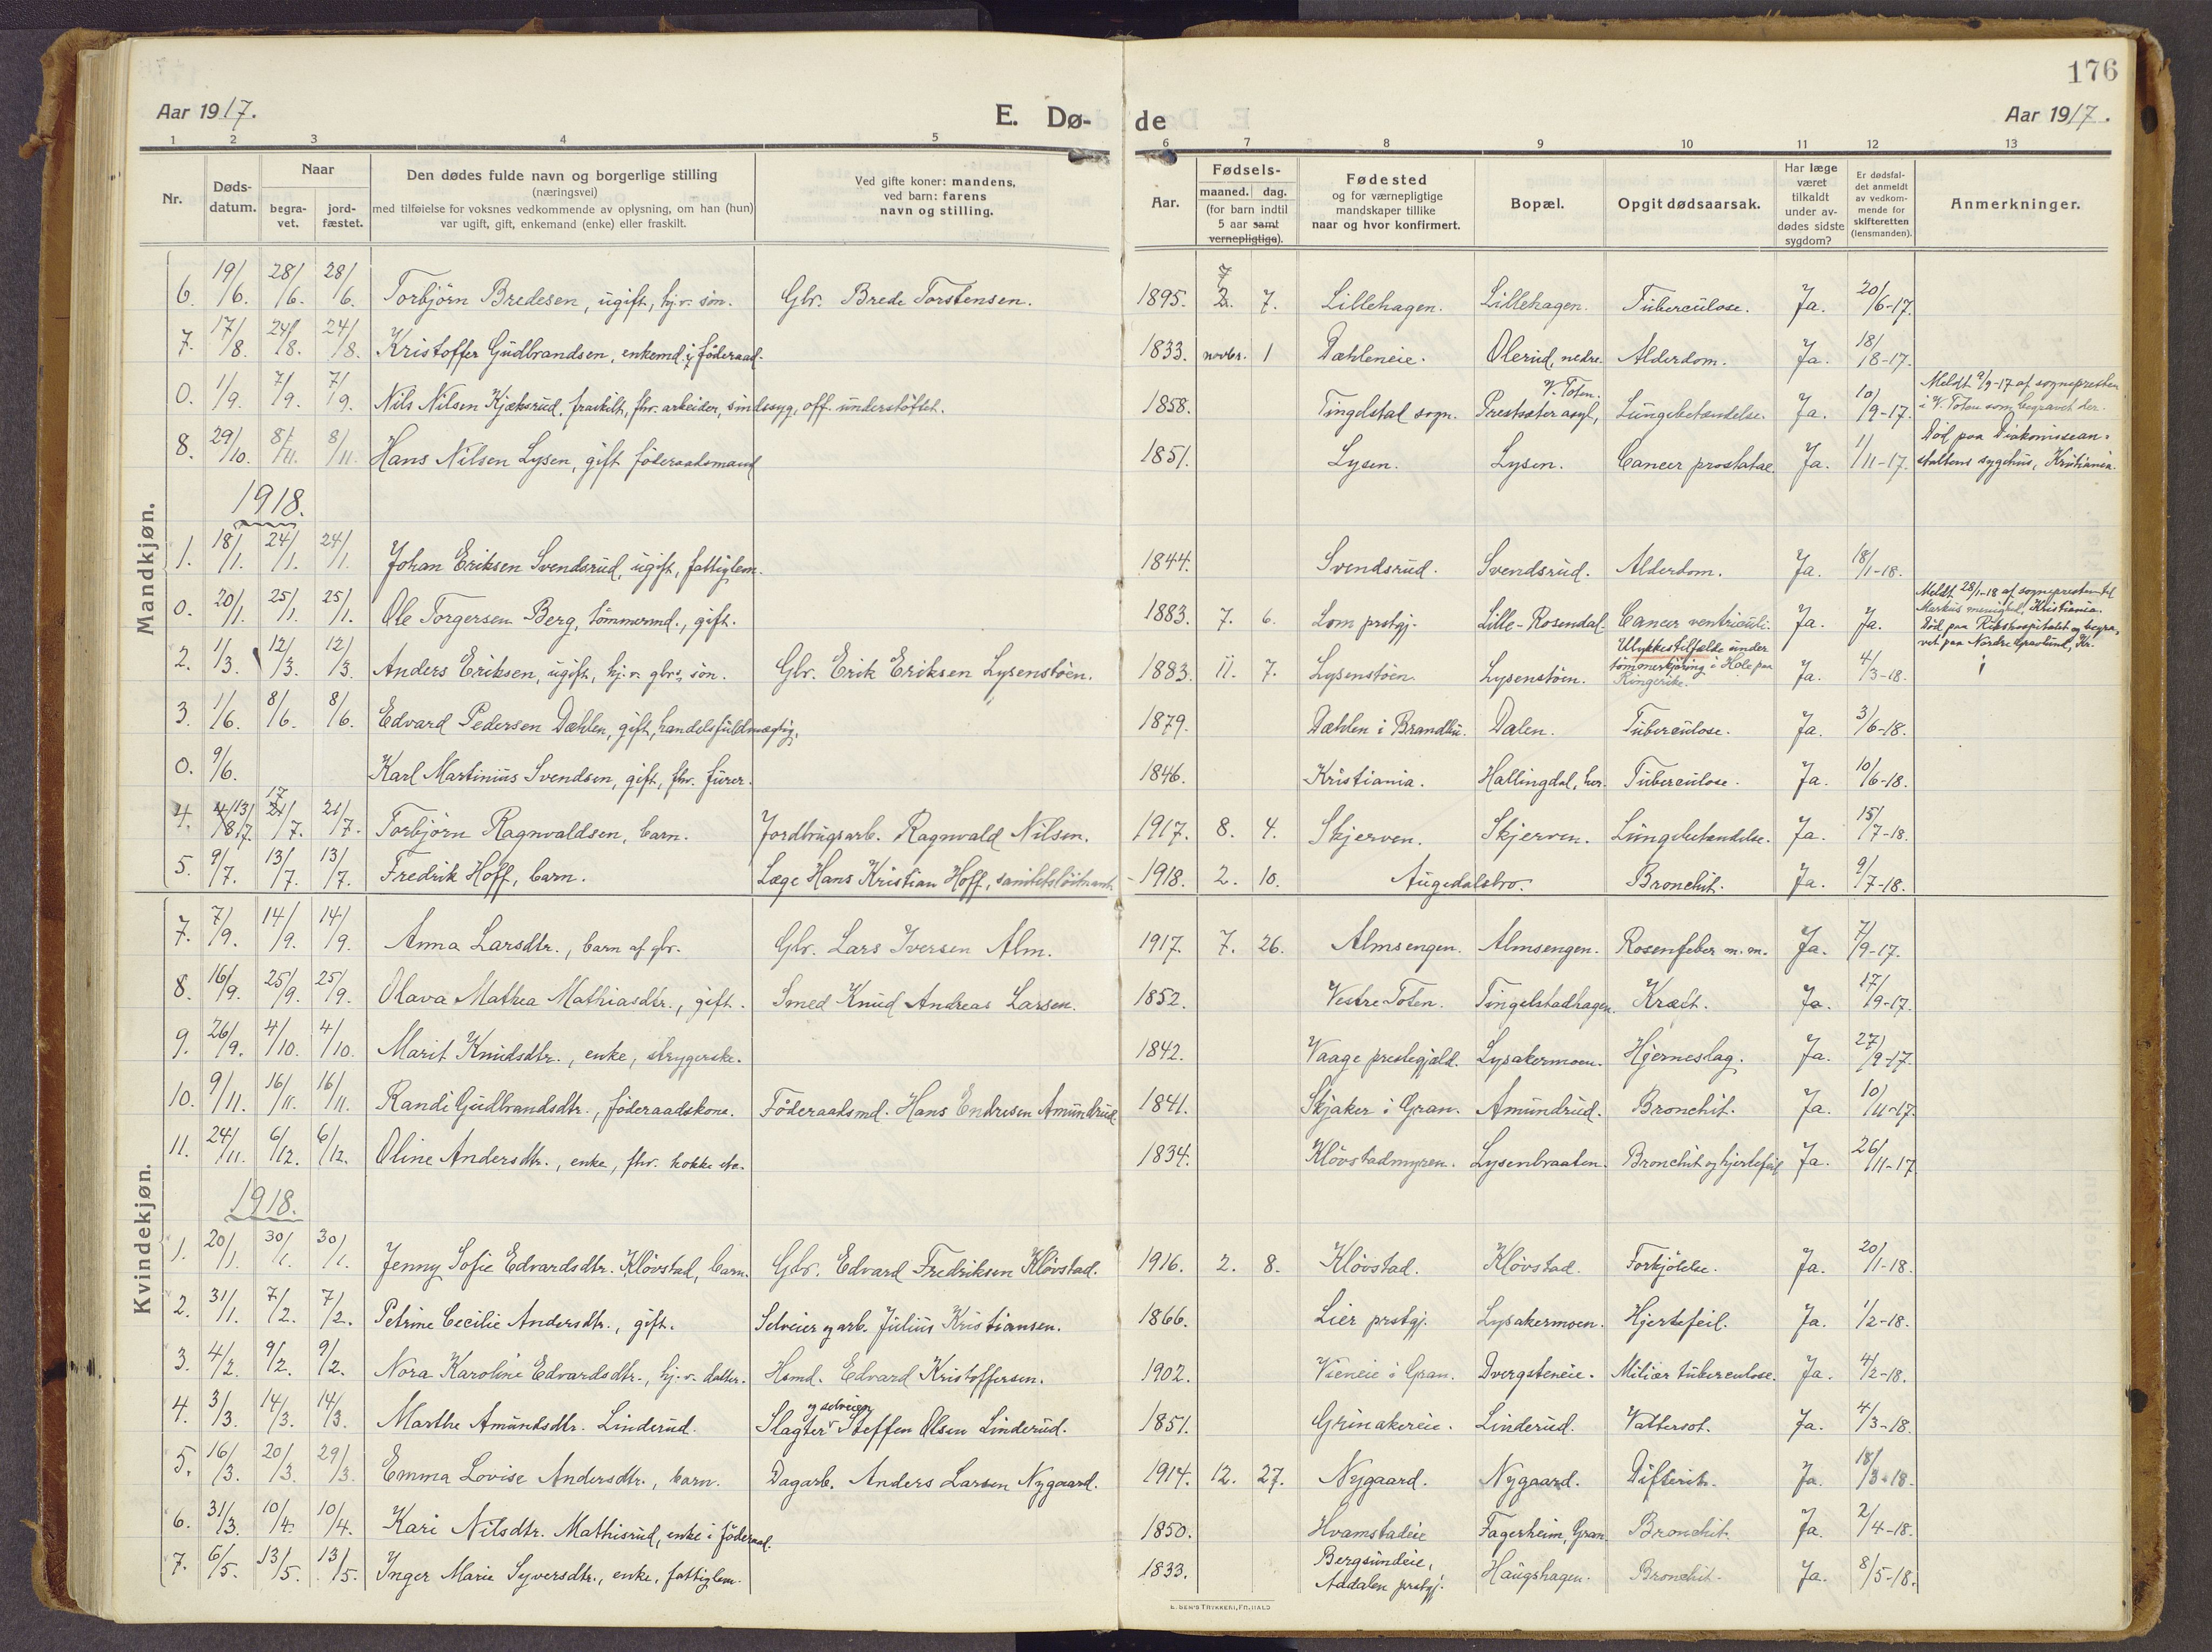 176
Aar 1917. E. Dø-de Aar 1917.
1 2 3 4 5 6 7 8 9 10 11 12 13
Nr. Døds-datum. Naar begra-vet. jord-fæstet. Den dødes fulde navn og borgerlige stilling (næringsvei) med tilføielse for voksnes vedkommende av oplysning, om han (hun) var ugift, gift, enkemand (enke) eller fraskilt. Ved gifte koner: mandens, ved barn: farens navn og stilling. Aar. Fødsels- maaned. dag. (for barn indtil 5 aar samt vernepligtige). Fødested og for værnepligtige mandskaper tillike naar og hvor konfirmert. Bopæl. Opgit dødsaarsak. Har læge været tilkaldt under av-dødes sidste sygdom? Er dødsfal-det anmeldt av vedkom-mende for skifteretten (lensmanden). Anmerkninger.
Mandkjøn.
6. 19/6. 28/6. 28/6. Torbjörn Bredesen, ugift, hj.v. sön. Gbr. Brede Torstensen. 1895. 7 2. 7. Lillehagen. Lillehagen. Tuberculose. Ja. 20/6-17.
7. 17/8. 24/8. 24/8. Kristoffer Gudbrandsen, enkemd. i föderaad. 1833. novbr. 1 Dæhleneie. Olerud, nedre. Alderdom. Ja. 18/8-17.
0. 1/9. 7/9. 7/9. Nils Nilsen Kjæksrud, fraskilt, fhv. arbeider, sindssyg, off. understöttet. 1858. Tingelstad sogn. Prestsæter asyl, V. Toten. Lungebetændelse. Ja. 10/9-17. Meldt 9/9-17 af sognepresten i V. Toten som begravet der.
8. 29/10. 8/11. 8/11. Hans Nilsen Lysen, gift föderaadsmand 1851. Lysen. Lysen. Cancer prostatae. Ja. 1/11-17. Död paa Diakonissean-staltens sygehus, Kristiania.
1918.
1. 18/1. 24/1. 24/1. Johan Eriksen Svendsrud, ugift, fattiglem. 1844. Svendsrud. Svendsrud. Alderdom. Ja. 18/1-18.
0. 20/1. 25/1. 25/1. Ole Torgersen Berg, tömmermd., gift. 1883. 7. 6. Lom prstgj. Lille-Rosendal. Cancer ventriculi. Ja. Ja. Meldt 28/1-18 af sognepresten til Markus menighed, Kristiania. Död paa Rikshospitalet og begra-vet paa Nordre Gravlund, Kr.
2. 1/3. 12/3. 12/3. Anders Eriksen, ugift, hj.v. gbrs. sön. Gbr. Erik Eriksen Lysenstöen. 1883. 11. 7. Lysenstöen. Lysenstöen. Ulykkestilfælde under tömmerkjöring i Hole paa Ringerike. Ja. 4/3-18.
3. 1/6. 8/6. 8/6. Edvard Pedersen Dæhlen, gift, handelsfuldmægtig. 1879. Dæhlen i Brandbu. Dalen. Tuberculose. Ja. 3/6-18.
0. 9/6. Karl Martinius Svendsen, gift, fhv. furer. 1846. Kristiania. Hallingdal, her. Tuberculose. Ja. 10/6-18.
4. 13/7. 17 21/7. 21/7. Torbjörn Ragnvaldsen, barn. Jordbrugsarb. Ragnvald Nilsen. 1917. 8. 4. Skjerven. Skjerven. Lungebetændelse. Ja. 15/7-18.
5. 9/7. 13/7. 13/7. Fredrik Hoff, barn. Læge Hans Kristian Hoff, sanitetslöitnant. 1918. 2. 10. Augedalsbro. Bronchit. Ja. 9/7-18.
Kvindekjøn.
7. 7/9. 14/9. 14/9. Anna Larsdtr., barn af gbr. Gbr. Lars Iversen Alm. 1917. 7. 26. Almsengen. Almsengen. Rosenfeber m.m. Ja. 7/9-17.
8. 16/9. 25/9. 25/9. Olava Mathea Mathiasdtr., gift. Smed Knud Andreas Larsen. 1852. Vestre Toten. Tingelstadhagen. Kræft. Ja. 17/9-17.
9. 26/9. 4/10. 4/10. Marit Knudsdtr., enke, strygerske. 1842. Vaage prestegjæld. Lysakermoen. Hjerneslag. Ja. 27/9-17.
10. 9/11. 16/11. 16/11. Randi Gudbrandsdtr., föderaadskone. Föderaadsmd. Hans Endresen Amundrud 1841. Skjaker i Gran. Amundrud. Bronchit. Ja. 10/11-17.
11. 24/11. 6/12. 6/12. Oline Andersdtr., enke, fhv. kokke etc. 1834. Klövstadmyren. Lysenbraaten. Bronchit og hjertefeil Ja. 26/11-17
1918.
1. 20/1. 30/1. 30/1. Jenny Sofie Edvardsdtr. Klövstad, barn. Gbr. Edvard Fredriksen Klövstad. 1916. 2. 8. Klövstad. Klövstad. Forkjölelse. Ja. 20/1-18.
2. 31/1. 7/2. 7/2. Petrine Cecilie Andersdtr., gift. Selveier og arb. Julius Kristiansen. 1866. Lier prstgj. Lysakermoen. Hjertefeil. Ja. 1/2-18.
3. 4/2. 9/2. 9/2. Nora Karoline Edvardsdtr., hj.v. datter. Hsmd. Edvard Kristoffersen. 1902. Vieneie i Gran. Dvergsteneie. Miliær tuberculose. Ja. 4/2-18.
4. 3/3. 14/3. 14/3. Marthe Amundsdtr. Linderud. Slagter og selveier Steffen Olsen Linderud. 1851. Grinakereie. Linderud. Vattersot. Ja. 4/3-18.
5. 16/3. 20/3. 29/3. Emma Lovise Andersdtr., barn. Dagarb. Anders Larsen Nygaard. 1914. 12. 27. Nygaard. Nygaard. Difterit. Ja. 18/3-18.
6. 31/3. 10/4. 10/4. Kari Nilsdtr. Mathisrud, enke i föderaad. 1850. Hvamstadeie Fagerheim, Gran Bronchit. Ja. 2/4-18.
7. 6/5. 13/5. 13/5. Inger Marie Syversdtr., enke, fattiglem. 1833. Bergsundeie, Aadalen prstgj. Haugshagen. Bronchit. Ja. 8/5-18.